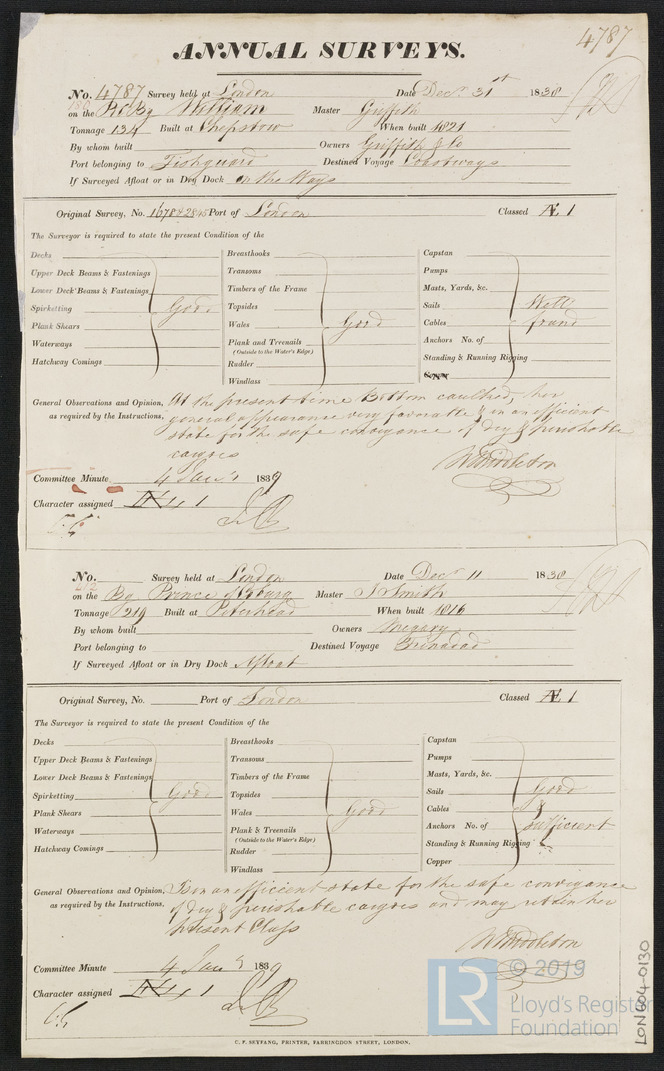 4787
ANNUAL SURVEYS.
No. 4787 Survey held at London Date Decr 31st 1838
on the William Master Griffith
Tonnage 134 Built at Chepstow When built 1821
By whom built Owners Griffith & Co
Port belonging to Fishguard Destined Voyage Coastways
If Surveyed Afloat or in Dry Dock on the Ways
Original Survey, No. Port of London Classed Æ 1
The Surveyor is required to state the present Condition of the
Decks
Upper Deck Beams & Fastenings
Lower Deck Beams & Fastenings
Spirketting
Plank Shears
Waterways
Hatchway Comings
Good
Breasthooks
Transoms
Timbers of the Frame
Topsides
Wales
Plank and Treenails
(Outside to the Water's Edge)
Rudder
Windlass
Good
Capstan
Pumps
Masts, Yards, &c.
Sails
Cables
Anchors No. of
Standing & Running Rigging
Copper
Well
found
General Observations and Opinion, At the present time Bottom caulked, her
as required by the Instructions. general appearance very favorable & in an efficient
state for the safe conveyance of dry & perishable
cargoes
W Middleton
Committee Minute 4 Jany 1839
Character assigned Æ 1
No. Survey held at London Date Decr 11 1838
on the Bg Prince Master J Smith
Tonnage 219 Built at Peterhead When built 1816
By whom built Owners Megary
Port belonging to Destined Voyage Trinadad
If Surveyed Afloat or in Dry Dock Afloat
Original Survey, No. Port of London Classed Æ 1
The Surveyor is required to state the present Condition of the
Decks
Upper Deck Beams & Fastenings
Lower Deck Beams & Fastenings
Spirketting
Plank Shears
Waterways
Hatchway Comings
Good
Breasthooks
Transoms
Timbers of the Frame
Topsides
Wales
Plank & Treenails
(Outside to the Water's Edge)
Rudder
Windlass
Good
Capstan
Pumps
Masts, Yards, &c.
Sails
Cables
Anchors No. of
Standing & Running Rigging
Copper
Good
&
sufficient
General Observations and Opinion, Is in an efficient state for the safe conveyance
as required by the Instructions. of dry & perishable cargoes and may retain her
present Class
W Middleton
Committee Minute 4 Jany 1839
Character assigned Æ 1
C. F. SEYFANG, PRINTER, FARRINGDON STREET, LONDON.
LR © 2019
Lloyd's Register
Foundation
LON604-0130